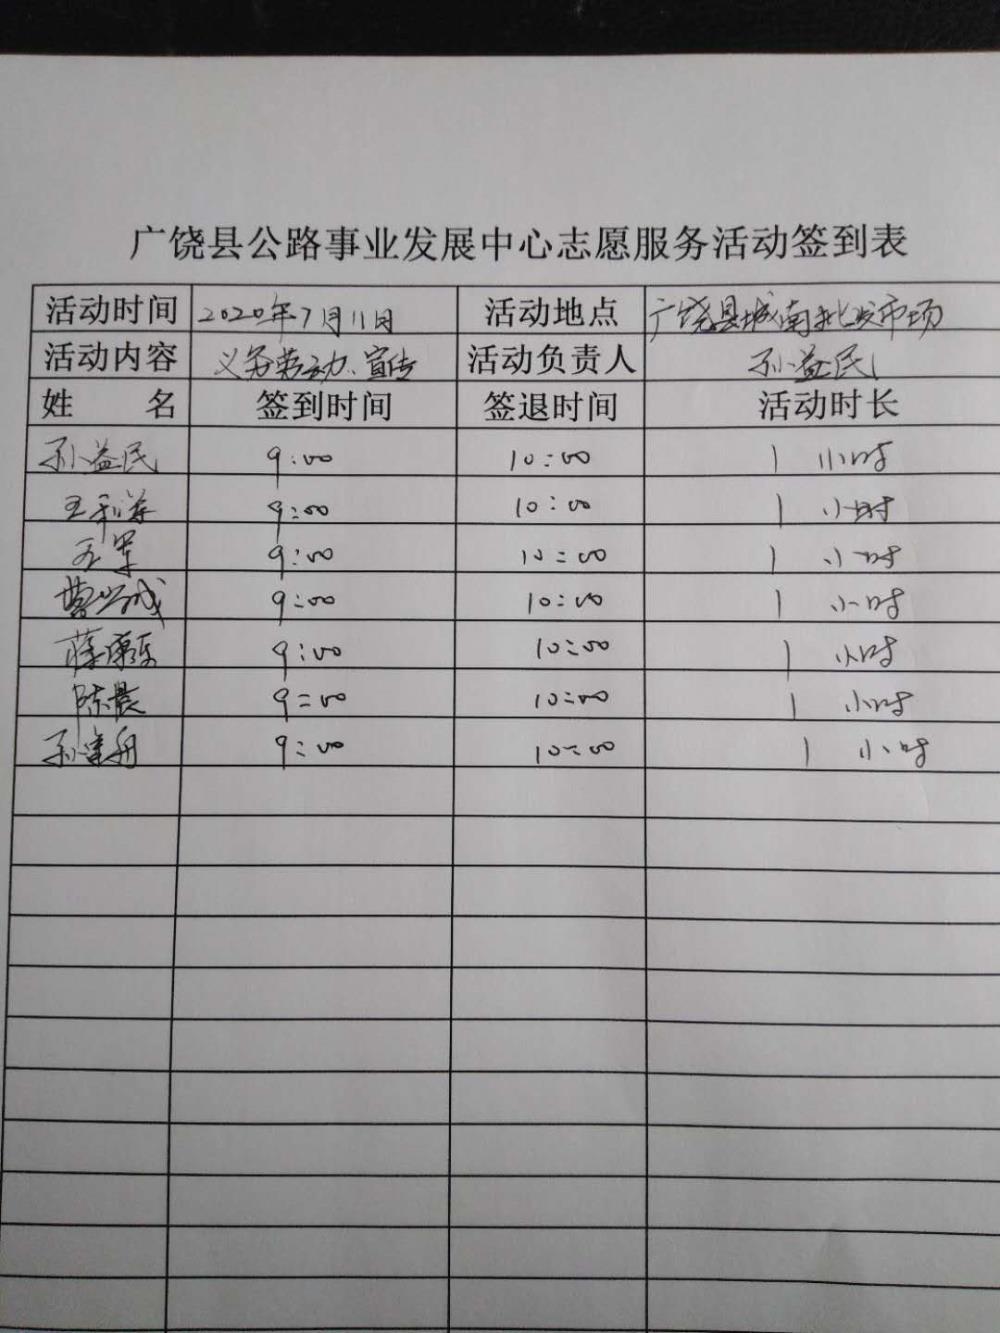 广饶县公路事业发展中心志愿服务活动签到表
活动时间 2020年7月11日 活动地点 广饶县城南批发市场
活动内容 义务劳动、宣传 活动负责人 孙益民
姓 名 签到时间 签退时间 活动时长
孙益民 9:00 10:00 1 小时
9:00 10:00 1 小时
王军 9:00 10:00 1 小时
9:00 10:00 1 小时
9:00 10:00 1 小时
陈晨 9:00 10:00 1 小时
9:00 10:00 1 小时